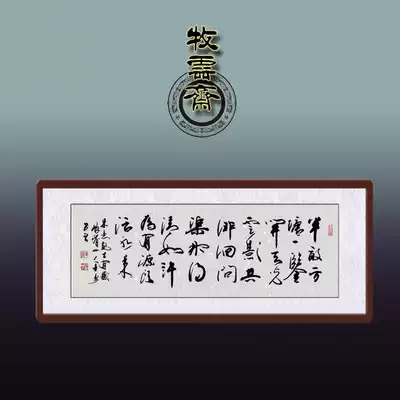 牧雲齋
半畝方
塘一鑒
開天光
雲影共
徘徊問
渠那得
清如許
為有源頭
活水來